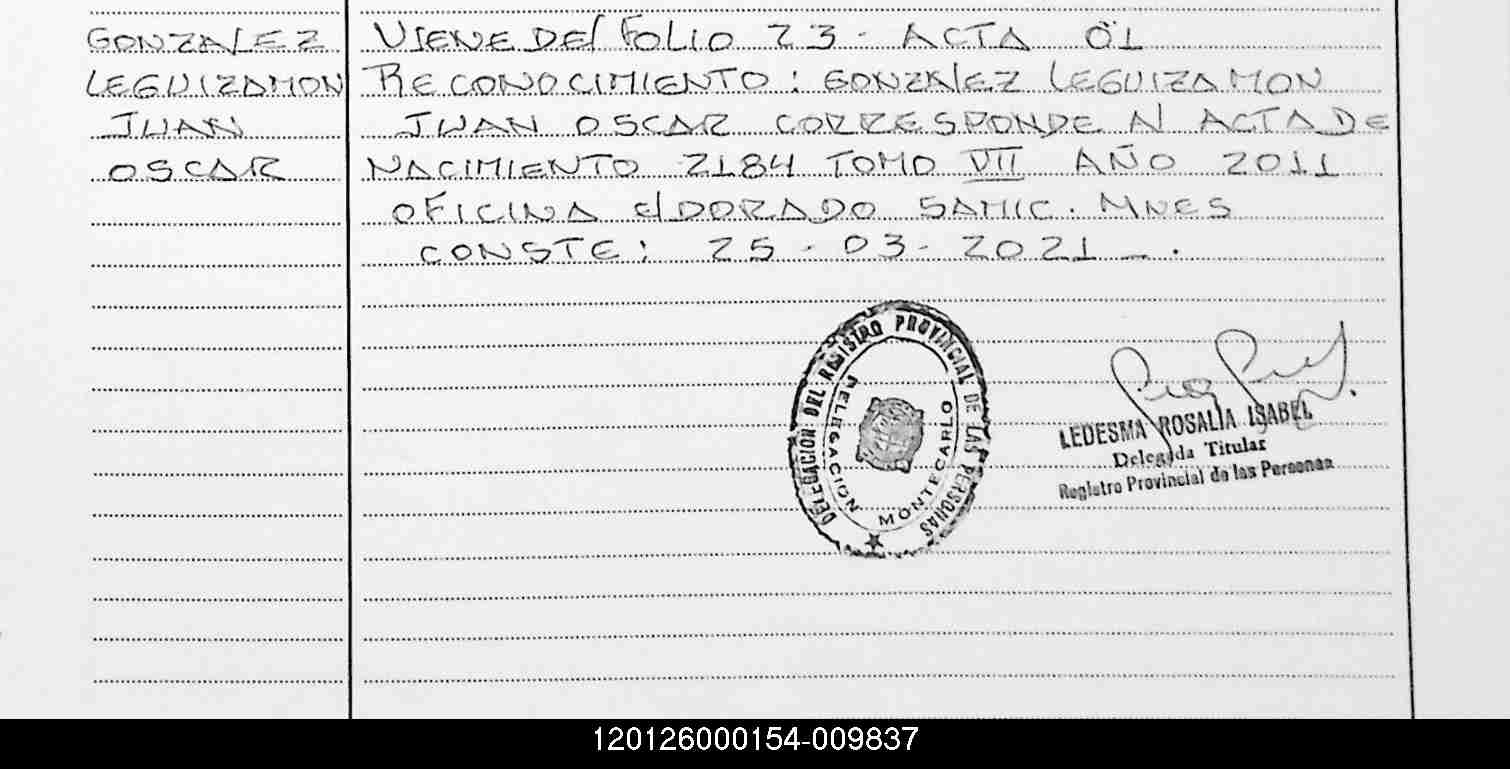 GONZALEZ
LEGUIZAMON
JUAN
OSCAR
VIENE DEL FOLIO 23 - ACTA 01
RECONOCIMIENTO: GONZALEZ LEGUIZAMON
JUAN OSCAR CORRESPONDE AL ACTA DE
NACIMIENTO 2184 TOMO VII AÑO 2011
OFICINA ELDORADO SAMIC. MNES
CONSTE: 25 - 03 - 2021 _ .
DELEGACION DEL REGISTRO PROVINCIAL DE LAS PERSONAS
DELEGACION MONTECARLO
LEDESMA ROSALIA ISABEL
Delegada Titular
Registro Provincial de las Personas
120126000154-009837